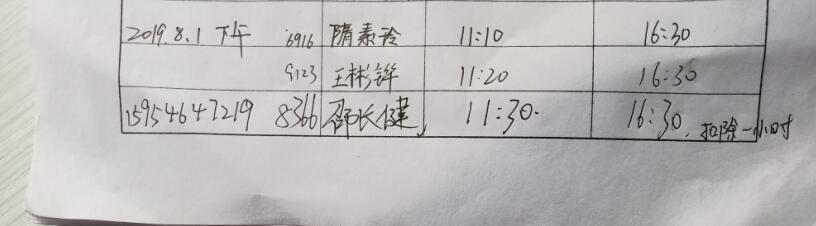 2019.8.1 下午 6916 隋素玲 11:10 16:30
9123 王彬铧 11:20 16:30
15954647219 8366 邵长健 11:30. 16:30. 扣除一小时